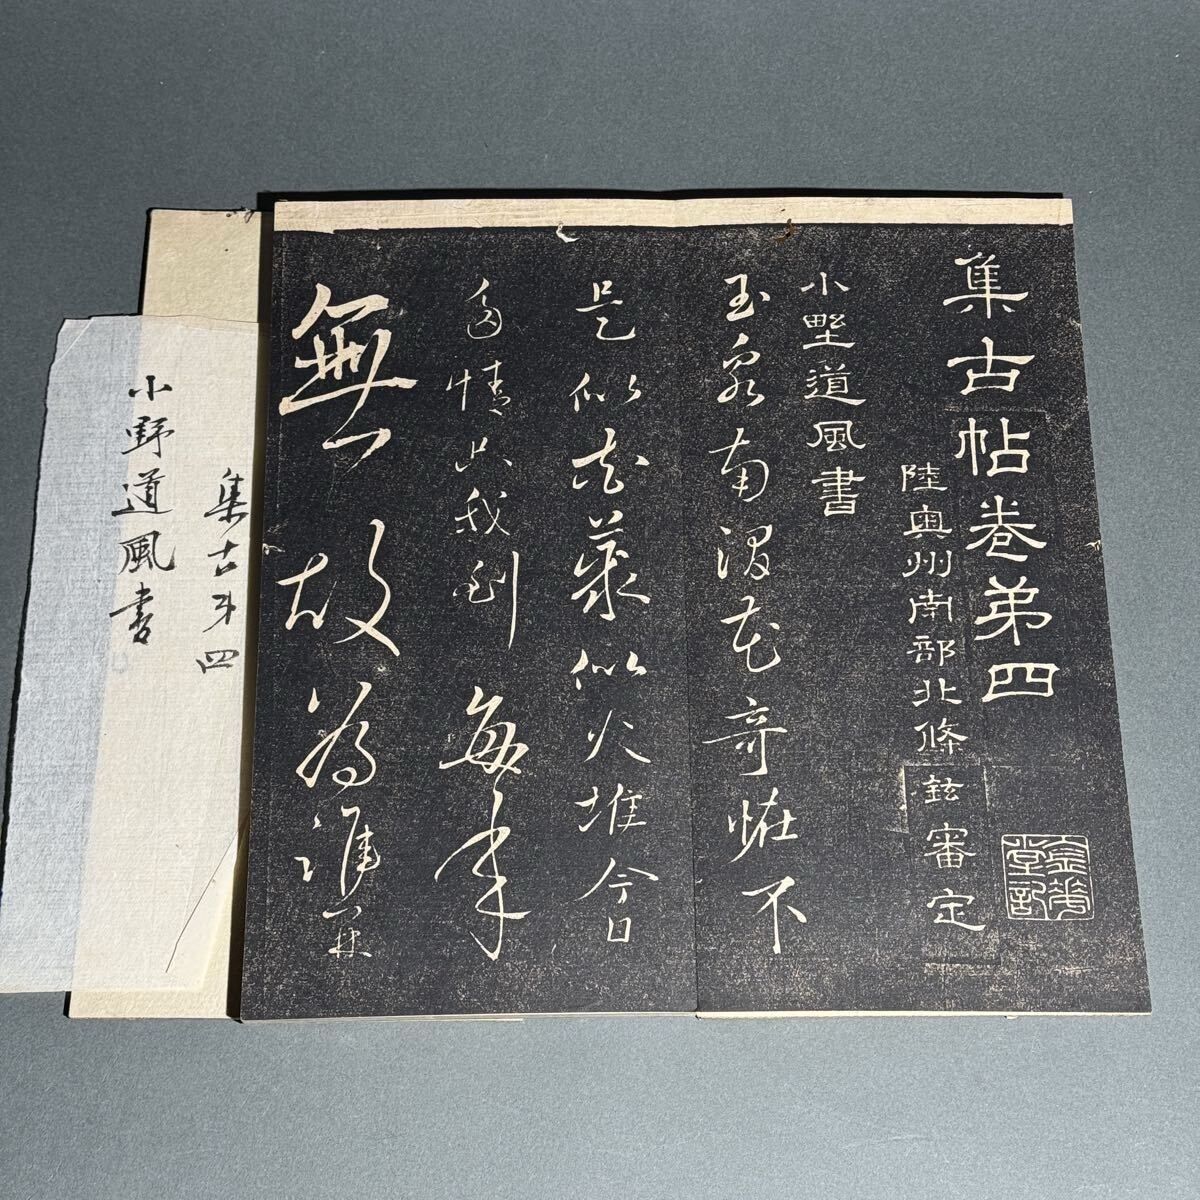 集古帖卷弟四
陸奥州南部北條鉉審定
小野道風書
玉泉南澗花奇怪不
是似花叢似火堆今日
多情只我到每年
無故為誰開
集古第四
小野道風書